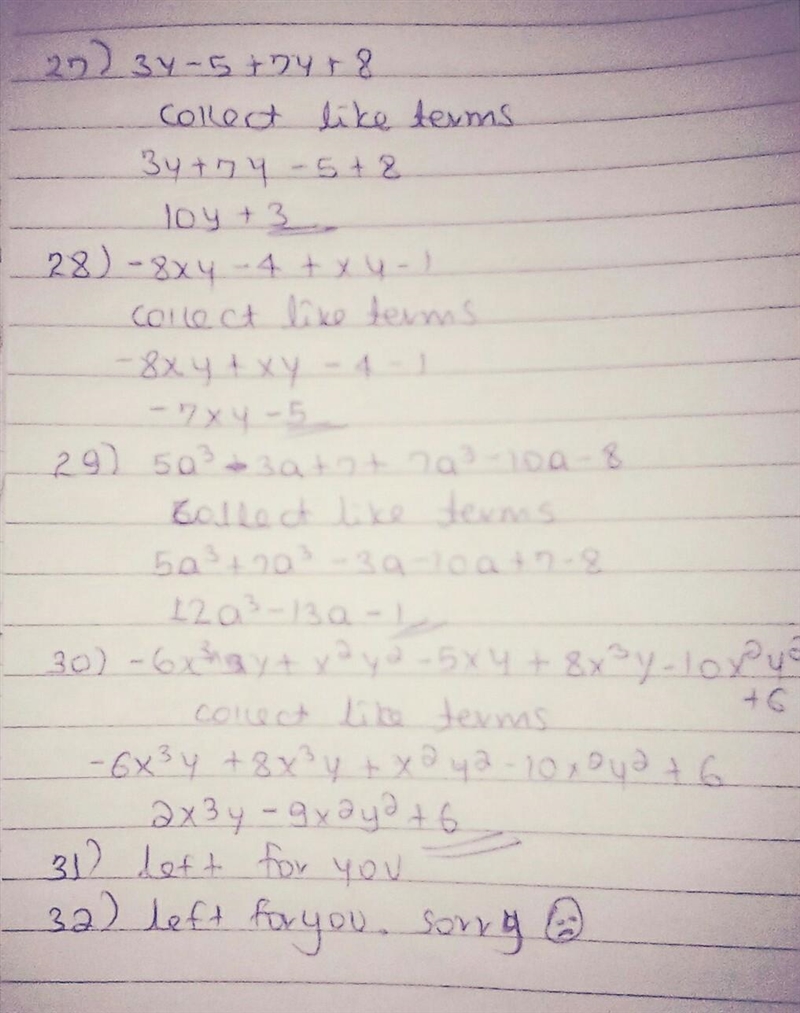 27) 3y - 5 + 7y + 8
collect like terms
3y + 7y - 5 + 8
10y + 3
28) -8xy - 4 + xy - 1
collect like terms
-8xy + xy - 4 - 1
-7xy - 5
29) 5a³ - 3a + 7 + 7a³ - 10a - 8
collect like terms
5a³ + 7a³ - 3a - 10a + 7 - 8
12a³ - 13a - 1
30) -6x³y + x²y² - 5xy + 8x³y - 10x²y²
+6
collect like terms
-6x³y + 8x³y + x²y² - 10x²y² + 6
2x³y - 9x²y² + 6
31) left for you
32) left for you. sorry ☹